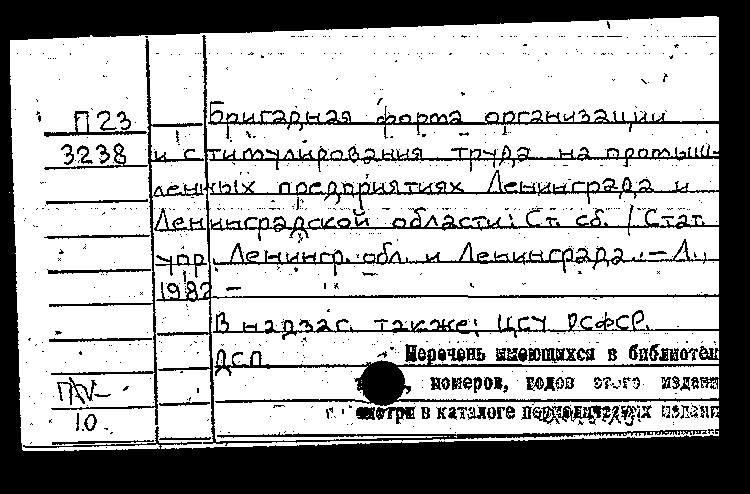 П23 Бригадная форма организации
3238 и стимулирования труда на промыш-
ленных предприятиях Ленинграда и
Ленинградской области: Ст. сб. / Стат.
упр. Ленингр. обл. и Ленинграда. – Л.,
1982 –
В надзаг. также: ЦСУ РСФСР.
ДСП. Перечень имеющихся в библиотек
номеров, годов этого издани
10 смотри в каталоге периодических издани